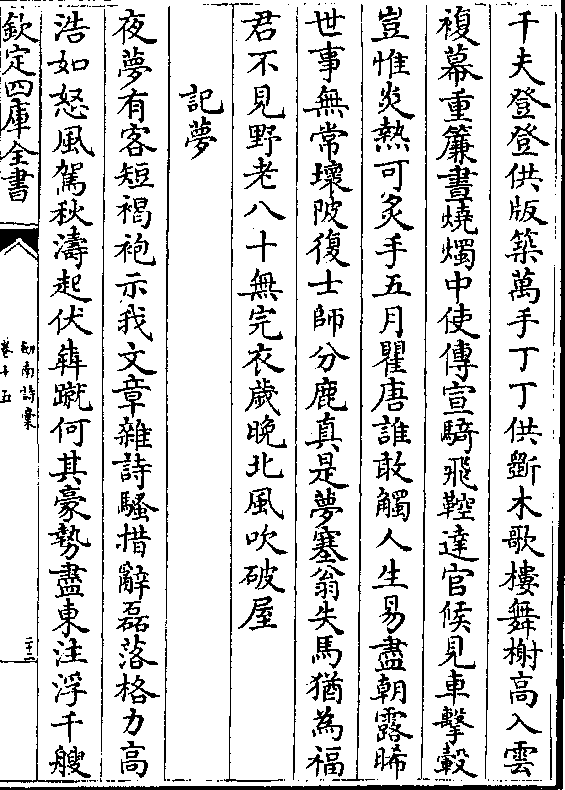 千夫登登供版築萬手丁丁供斵木歌樓舞榭高入雲
複幕重簾晝燒燭中使傳宣騎飛鞚達官候見車擊轂
豈惟炎熱可炙手五月瞿唐誰敢觸人生易盡朝露晞
世事無常壞陂復士師分鹿真是夢塞翁失馬猶為福
君不見野老八十無完衣歲晚北風吹破屋
記夢
夜夢有客短褐袍示我文章雜詩騷措辭磊落格力高
浩如怒風駕秋濤起伏犇蹴何其豪勢盡東注浮千艘
欽定四庫全書
劒南詩稾
卷十五
二十三